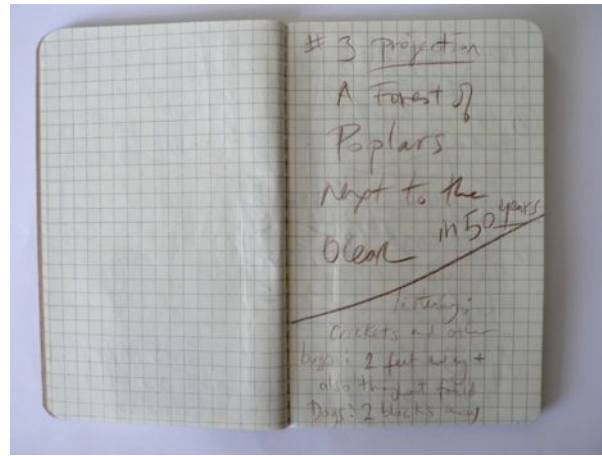 # 3 projection
A Forest of
Poplars
Next to the
Ocean in 50 years
listening:
Crickets and other
bugs: 2 feet away +
also throughout
Dogs: 2 blocks away